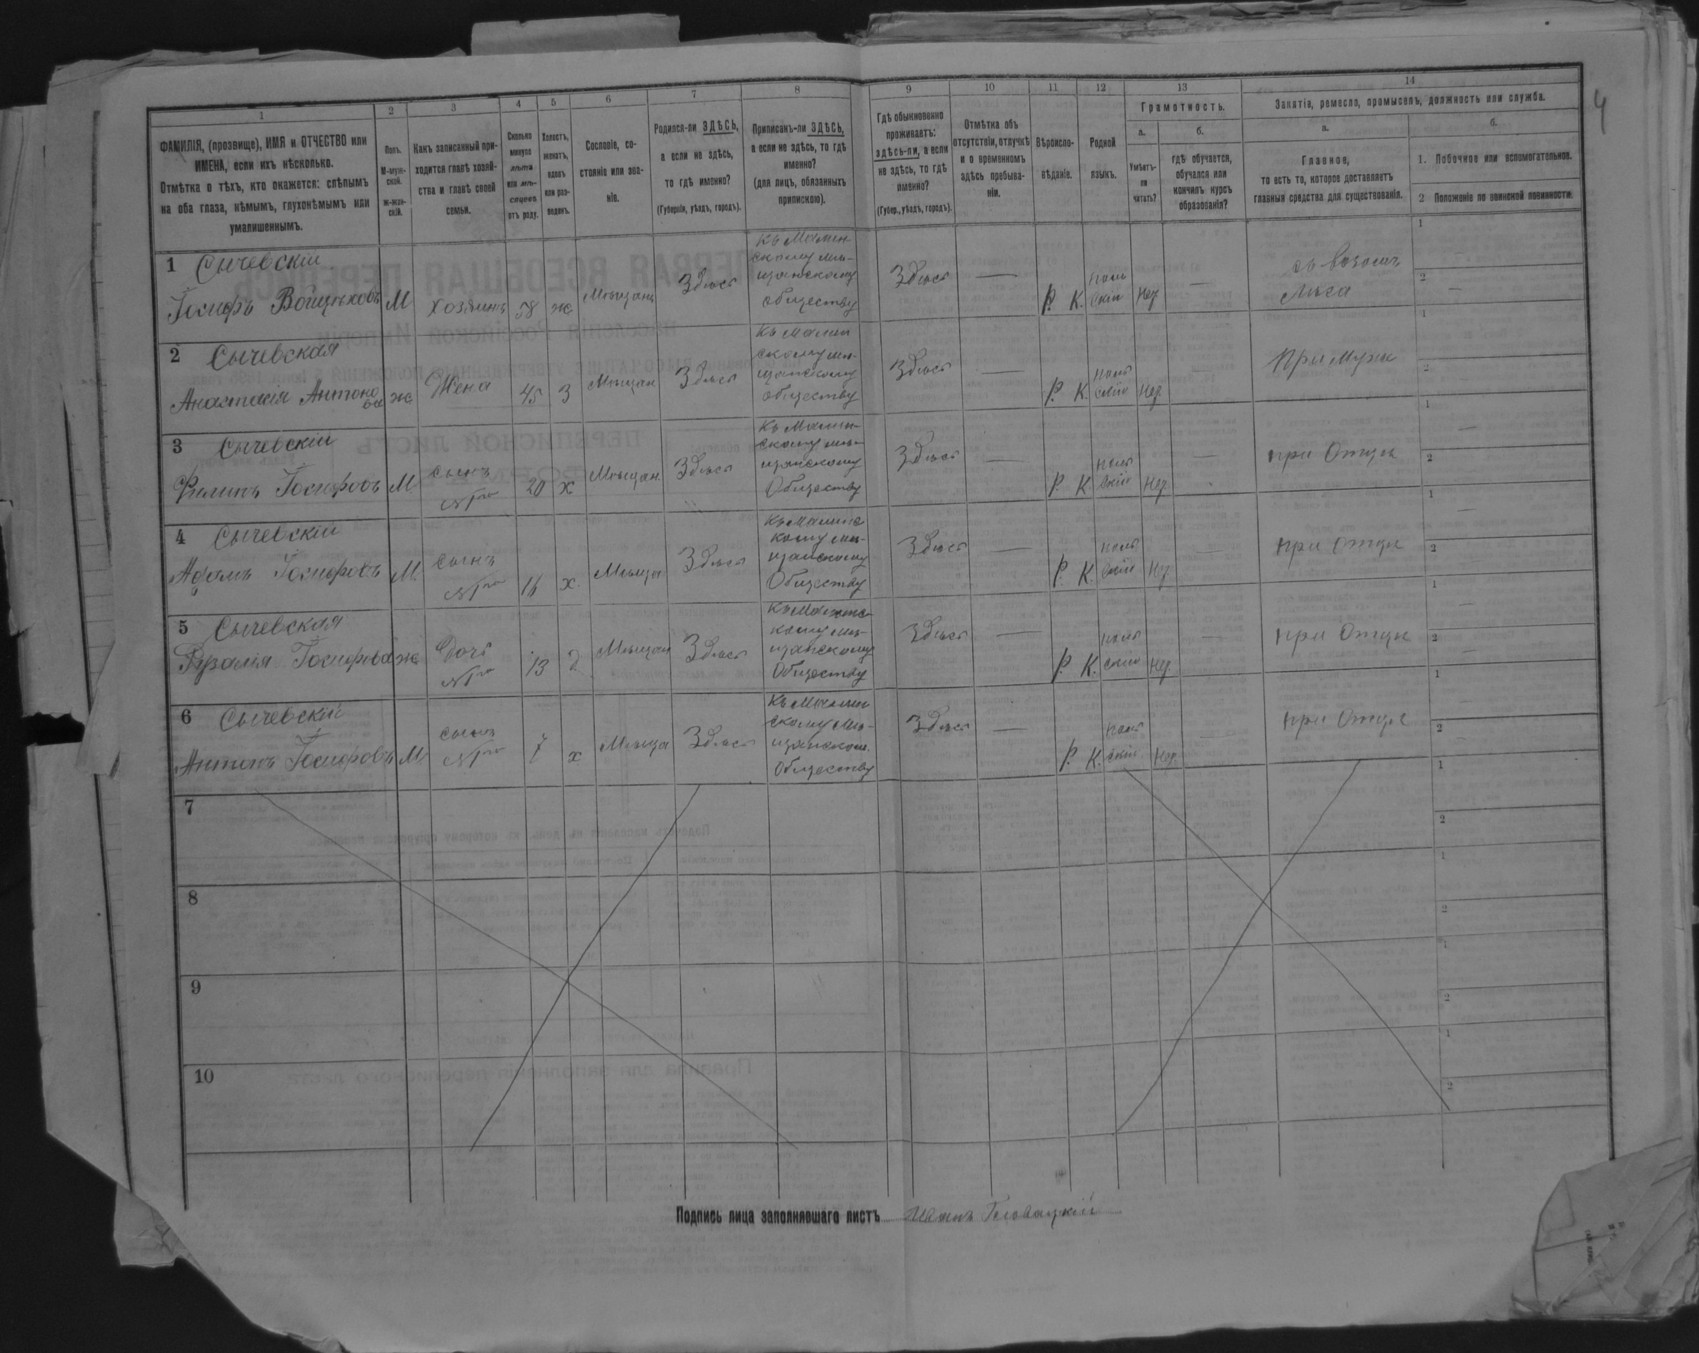 4
1 2 3 4 5 6 7 8 9 10 11 12 13 14
ФАМИЛІЯ, (прозвище), ИМЯ и ОТЧЕСТВО или ИМЕНА, если ихъ нѣсколько.
Отмѣтка о тѣхъ, кто окажется: слѣпымъ на оба глаза, нѣмымъ, глухонѣмымъ или умалишеннымъ.
Полъ. М-мужской. Ж-женскій.
Какъ записанный приходится главѣ хозяйства и главѣ своей семьи.
Сколько минуло лѣтъ или мѣсяцевъ отъ роду.
Холостъ, женатъ, вдовъ или разведенъ.
Сословіе, состояніе или званіе.
Родился-ли ЗДѢСЬ, а если не здѣсь, то гдѣ именно?
(Губернія, уѣздъ, городъ).
Приписанъ-ли ЗДѢСЬ, а если не здѣсь, то гдѣ именно?
(для лицъ, обязанныхъ припискою).
Гдѣ обыкновенно проживаетъ: здѣсь-ли, а если не здѣсь, то гдѣ именно?
(Губер., уѣздъ, городъ).
Отмѣтка объ отсутствіи, отлучкѣ и о временномъ здѣсь пребываніи.
Вѣроисповѣданіе.
Родной языкъ.
Грамотность.
а. Умѣетъ-ли читать?
б. гдѣ обучается, обучался или кончилъ курсъ образованія?
Занятіе, ремесло, промыселъ, должность или служба.
а. Главное, то есть то, которое доставляетъ главныя средства для существованія.
б.
1. Побочное или вспомогательное.
2 Положеніе по воинской повинности.
1 Сычевскій
Іосифъ Войцѣховъ М Хозяинъ 58 ж Мѣщанъ Здѣсь Къ Малинскому мѣщанскому обществу Здѣсь — Р. К. польскій Нѣт — лѣса
2 Сычевская
Анастасія Антонова ж Жена 45 З Мѣщан Здѣсь Къ Малинскому мѣщанскому обществу Здѣсь — Р. К. польскій Нѣт — При Мужѣ
3 Сычевскій
Филипъ Іосифовъ М сынъ 20 х Мѣщан Здѣсь Къ Малинскому мѣщанскому Обществу Здѣсь — Р. К. польскій Нѣт — при Отцѣ
4 Сычевскій
Адамъ Іосифовъ М сынъ 16 х Мѣщан Здѣсь Къ Малинскому мѣщанскому Обществу Здѣсь — Р. К. польскій Нѣт — при Отцѣ
5 Сычевская
Розалія Іосифова ж Дочь 13 д Мѣщан Здѣсь Къ Малинскому мѣщанскому Обществу Здѣсь — Р. К. польскій Нѣт — при Отцѣ
6 Сычевскій
Антонъ Іосифовъ М сынъ 7 х Мѣща Здѣсь Къ Малинскому мѣщанском. Обществу Здѣсь — Р. К. польскій Нѣт — при Отцѣ
7
8
9
10
Подпись лица заполнявшаго листъ